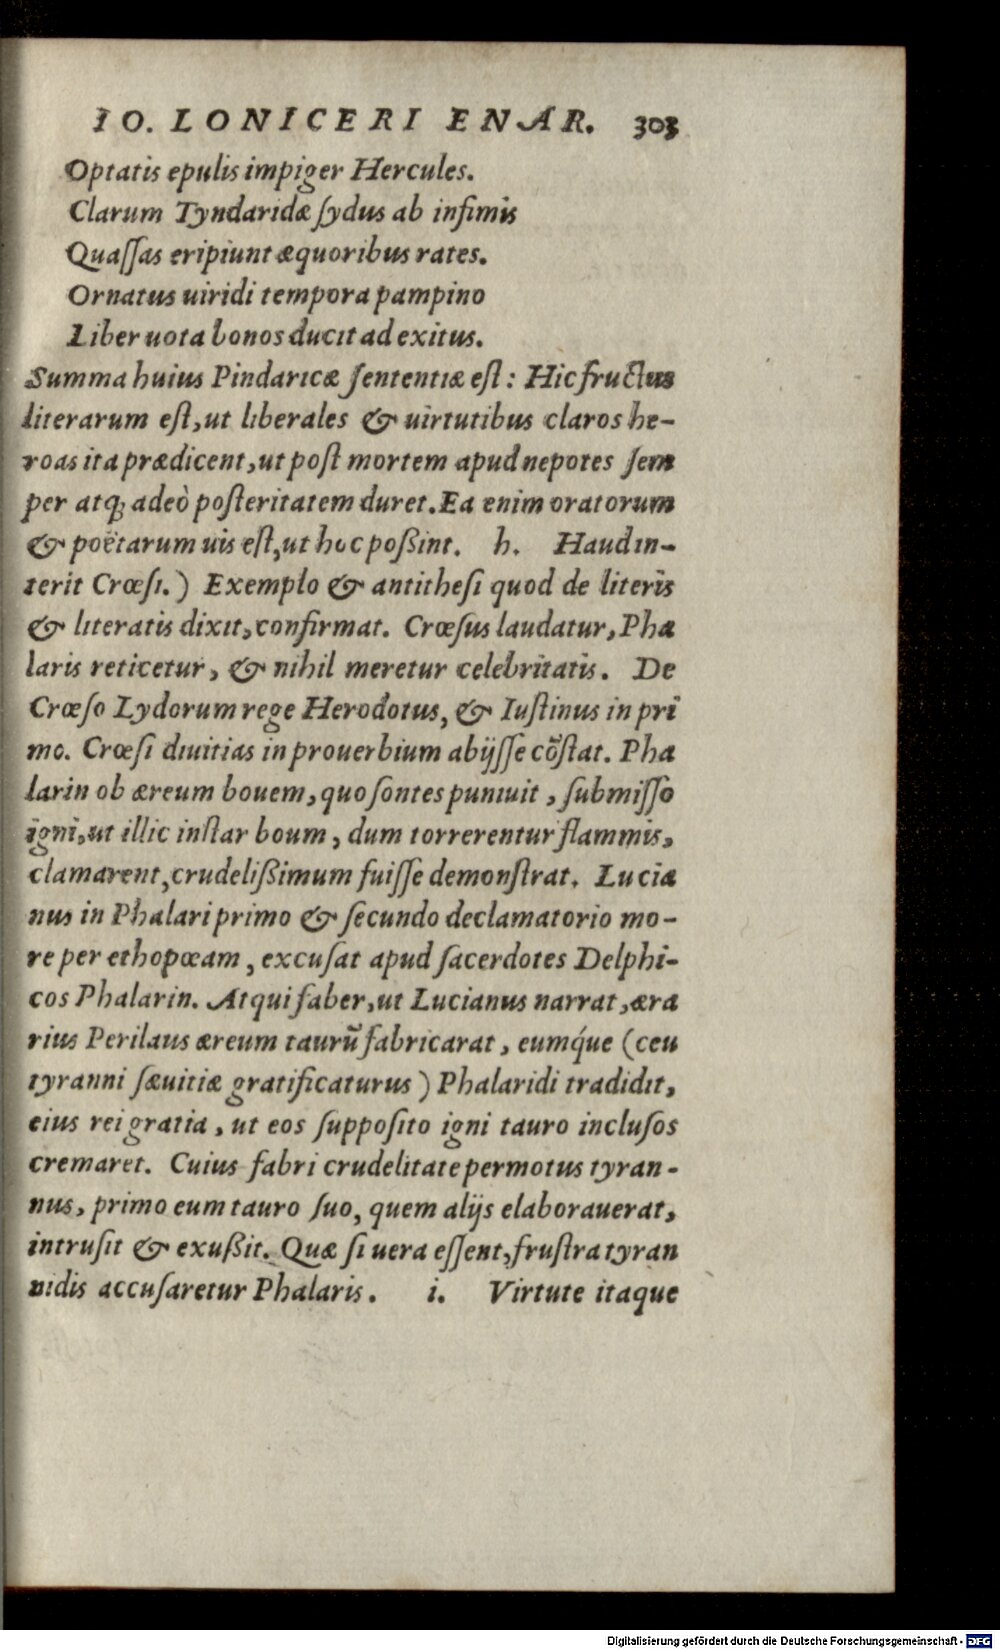 IO. LONICERI ENAR. 303
Optatis epulis impiger Hercules.
Clarum Tyndaridæ ſydus ab infimis
Quaſſas eripiunt æquoribus rates.
Ornatus uiridi tempora pampino
Liber uota bonos ducit ad exitus.
Summa huius Pindaricæ ſententiæ eſt: Hic fructus
literarum eſt, ut liberales & uirtutibus claros he-
roas ita prædicent, ut poſt mortem apud nepotes ſem
per atq; adeò poſteritatem duret. Ea enim oratorum
& poëtarum uis eſt, ut hoc poßint. h. Haud in-
terit Crœſi.) Exemplo & antitheſi quod de literis
& literatis dixit, confirmat. Crœſus laudatur, Pha
laris reticetur, & nihil meretur celebritatis. De
Crœſo Lydorum rege Herodotus, & Iuſtinus in pri
mo. Crœſi diuitias in prouerbium abijſſe cõſtat. Pha
larin ob æreum bouem, quo ſontes puniuit, ſubmiſſo
igni, ut illic inſtar boum, dum torrerentur flammis,
clamarent, crudelißimum fuiſſe demonſtrat. Lucia
nus in Phalari primo & ſecundo declamatorio mo-
re per ethopœam, excuſat apud ſacerdotes Delphi-
cos Phalarin. Atqui faber, ut Lucianus narrat, æra
rius Perilaus æreum taurũ fabricarat, eumq́ue (ceu
tyranni ſæuitiæ gratificaturus) Phalaridi tradidit,
eius rei gratia, ut eos ſuppoſito igni tauro incluſos
cremaret. Cuius fabri crudelitate permotus tyran-
nus, primo eum tauro ſuo, quem alijs elaborauerat,
intruſit & exußit. Quæ ſi uera eſſent, fruſtra tyran
nidis accuſaretur Phalaris. i. Virtute itaque
Digitalisierung gefördert durch die Deutsche Forschungsgemeinschaft - DFG